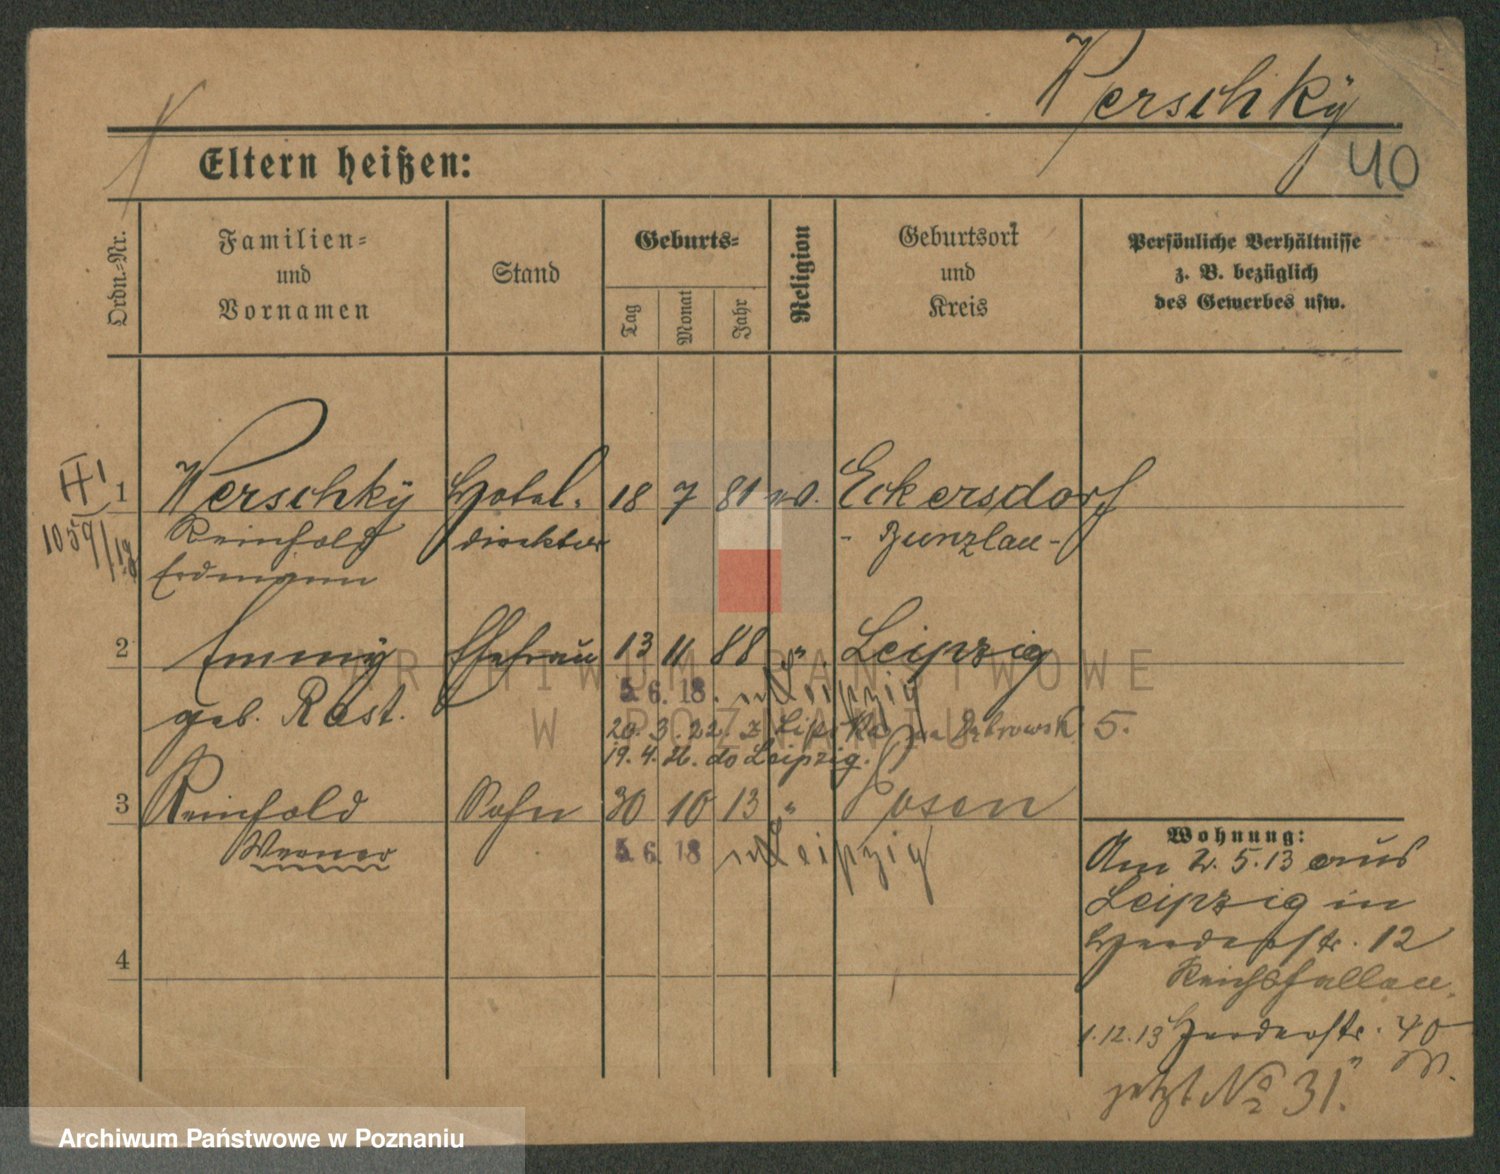 Werschky
40
Eltern heißen:
Ordn.-Nr.
Familien-
und
Vornamen
Stand
Geburts-
Tag
Monat
Jahr
Religion
Geburtsort
und
Kreis
Persönliche Verhältnisse
z. B. bezüglich
des Gewerbes usw.
1 Werschky Hotel- 18 7 81 Eckersdorf
1059/18 Reinhold direktor - Bunzlau -
Erdmann
2 Emmy Ehefrau 13 11 88 " Leipzig
5. 6. 18. Leipzig
geb. Rast.
20. 3. 22. z Lipska 5.
19. 4. do Leipzig.
3 Reinhold Sohn 30 10 13 " Posen
Werner 5. 6. 18 Leipzig
4
Wohnung:
Am 2. 5. 13 aus
Leipzig in
Herderstr. 12
Reichshallen
1.12.13 Herderstr. 40
jetzt No 31.
ARCHIWUM PAŃSTWOWE
W POZNANIU
Archiwum Państwowe w Poznaniu